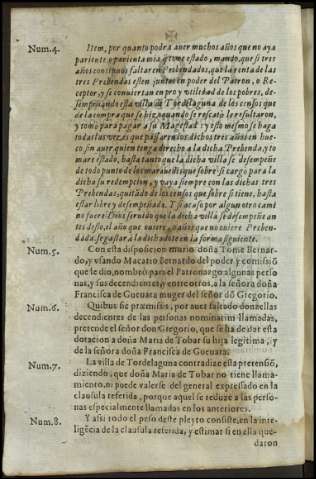 Num.4. Item, por quanto podra auer muchos años que no aya
pariente, o parienta mia, que tome estado, mando, que si tres
años continuos faltaren Prebendados, que la renta de las
tres Prebendas esten juntas en poder del Patron, o Re-
ceptor, y se conuiertan en pro y vtilidad de los pobres, de-
sempeñando esta villa de Tordelaguna de los censos que
de la compra que se hizo quando se rescatò le resultaron,
y tomò para pagar a su Magestad: y esto mismo se haga
todas las vezes que passaren los dichos tres años en hue-
co, sin auer quien tenga derecho a la dicha Prebenda, y to-
mare estado, hasta tanto que la dicha villa se desempeñe
de todo punto de los marauedis que sobre si cargò para la
dicha su redempcion, y vaya siempre con las dichas tres
Prebendas quitando de los censos que sobre si tiene, hasta
estar libre y desempeñada. Y si acaso por algun otro cami
no fuere Dios seruido que la dicha villa se desempeñe an
tes desto, el año que vuiere, que no vuiere Prebenda-
da, se gastara la dicha renta en la forma siguiente.
Num.5. Con esta disposicion murio doña Tome Bernar-
do, y vsando Macario Bernardo del poder y comissiõ
que le dio, nombrò para el Patronazgo algunas perso
nas, y sus decendientes, y entre otros, a la señora doña
Francisca de Gueuara muger del señor dõ Gregorio.
Num.6. Quibus sic præmissis, por auer faltado todas las
decendientes de las personas nominatim llamadas,
pretende el señor don Gregorio, que se ha de dar esta
dotacion a doña Maria de Tobar su hija legitima, y
de la señora doña Francisca de Gueuara.
Num.7. La villa de Tordelaguna contradize esta pretensiõ,
diziendo, que doña Maria de Tobar no tiene llama-
miento, ni puede valerse del general expressado en la
clausula referida, porque aquel se reduze a las perso-
nas especialmente llamadas en los anteriores.
Num.8. Y assi todo el peso deste pleyto consiste, en la inte-
ligẽcia de la clausula referida, y estimar si en ella que-
daron